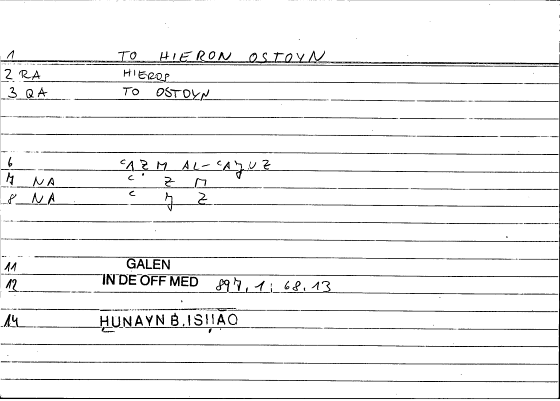 1 TO HIERON OSTOYN
2 RA HIEROS
3 QA TO OSTOYN
6 ʿAẒM AL-ʿAǦUZ
7 NA ʿ Z M
8 NA ʿ Ǧ Z
11 GALEN
12 IN DE OFF MED 897,1; 68.13
14 ḤUNAYN B. ISḤĀQ